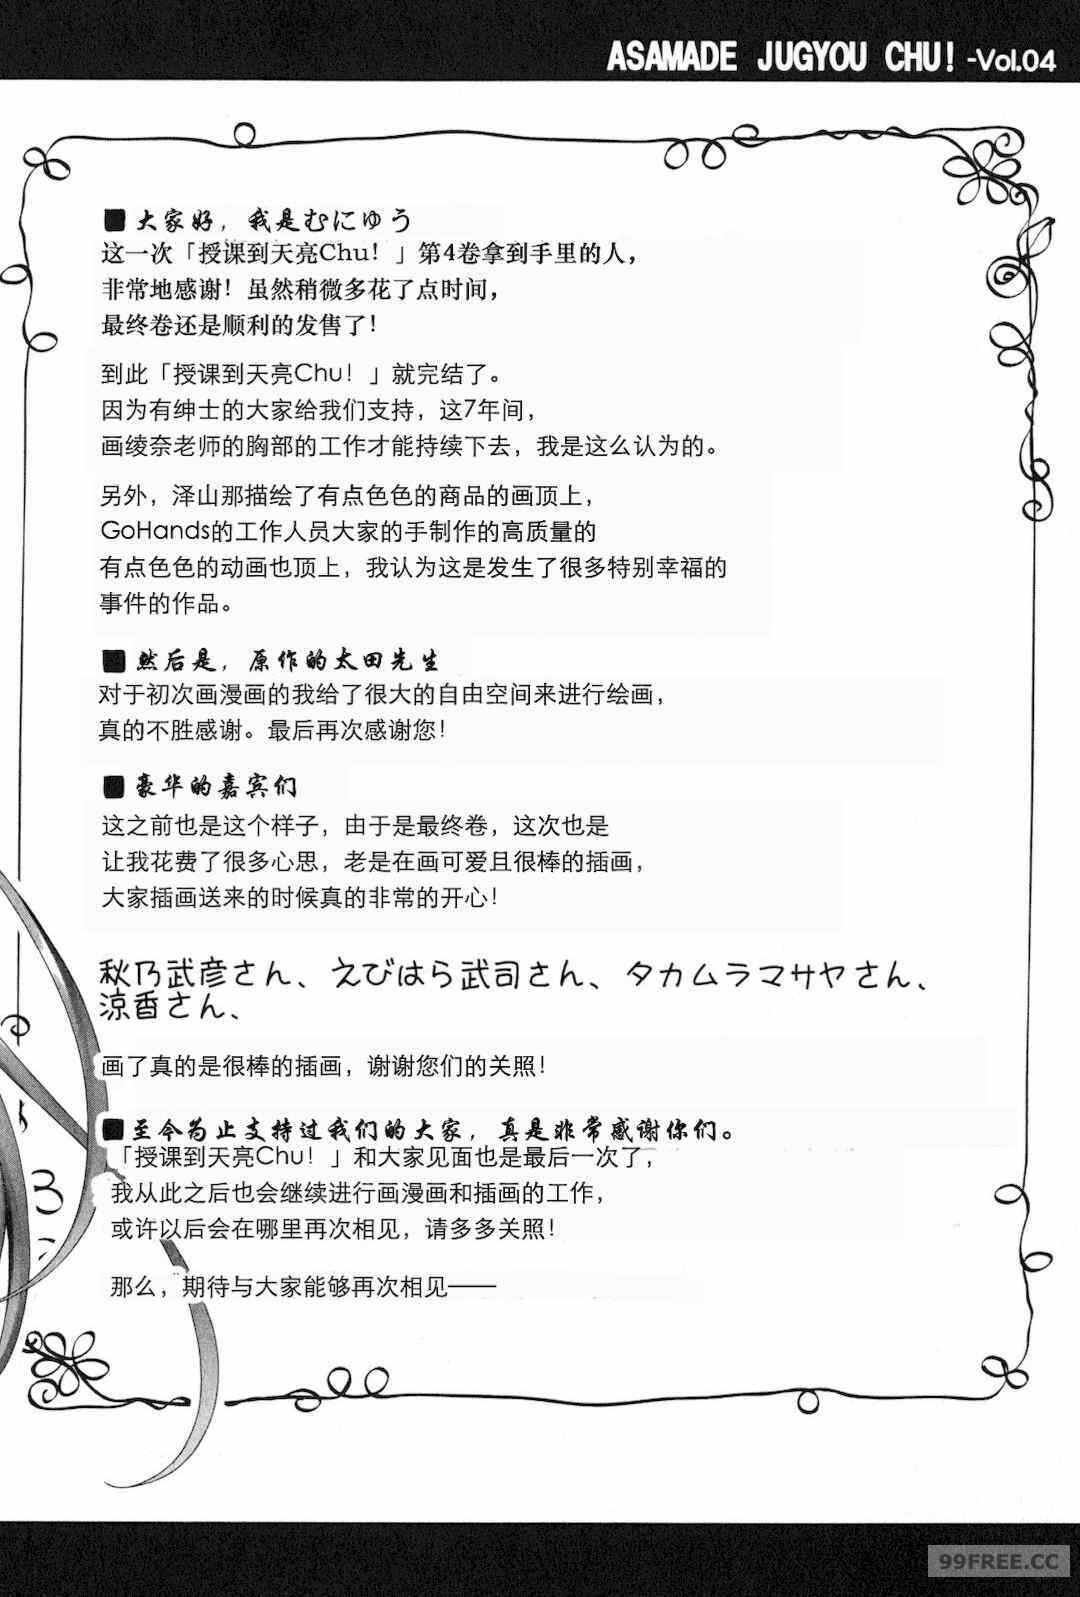 ASAMADE JUGYOU CHU! -Vol.04
■大家好，我是むにゅう
这一次「授课到天亮Chu！」第4卷拿到手里的人，
非常地感谢！虽然稍微多花了点时间，
最终卷还是顺利的发售了！
到此「授课到天亮Chu！」就完结了。
因为有绅士的大家给我们支持，这7年间，
画绫奈老师的胸部的工作才能持续下去，我是这么认为的。
另外，泽山那描绘了有点色色的商品的画顶上，
GoHands的工作人员大家的手制作的高质量的
有点色色的动画也顶上，我认为这是发生了很多特别幸福的
事件的作品。
■然后是，原作的太田先生
对于初次画漫画的我给了很大的自由空间来进行绘画，
真的不胜感谢。最后再次感谢您！
■豪华的嘉宾们
这之前也是这个样子，由于是最终卷，这次也是
让我花费了很多心思，老是在画可爱且很棒的插画，
大家插画送来的时候真的非常的开心！
秋乃武彦さん、えびはら武司さん、タカムラマサヤさん、
涼香さん、
画了真的是很棒的插画，谢谢您们的关照！
■至今为止支持过我们的大家，真是非常感谢你们。
「授课到天亮Chu！」和大家见面也是最后一次了，
我从此之后也会继续进行画漫画和插画的工作，
或许以后会在哪里再次相见，请多多关照！
那么，期待与大家能够再次相见——
99FREE.CC